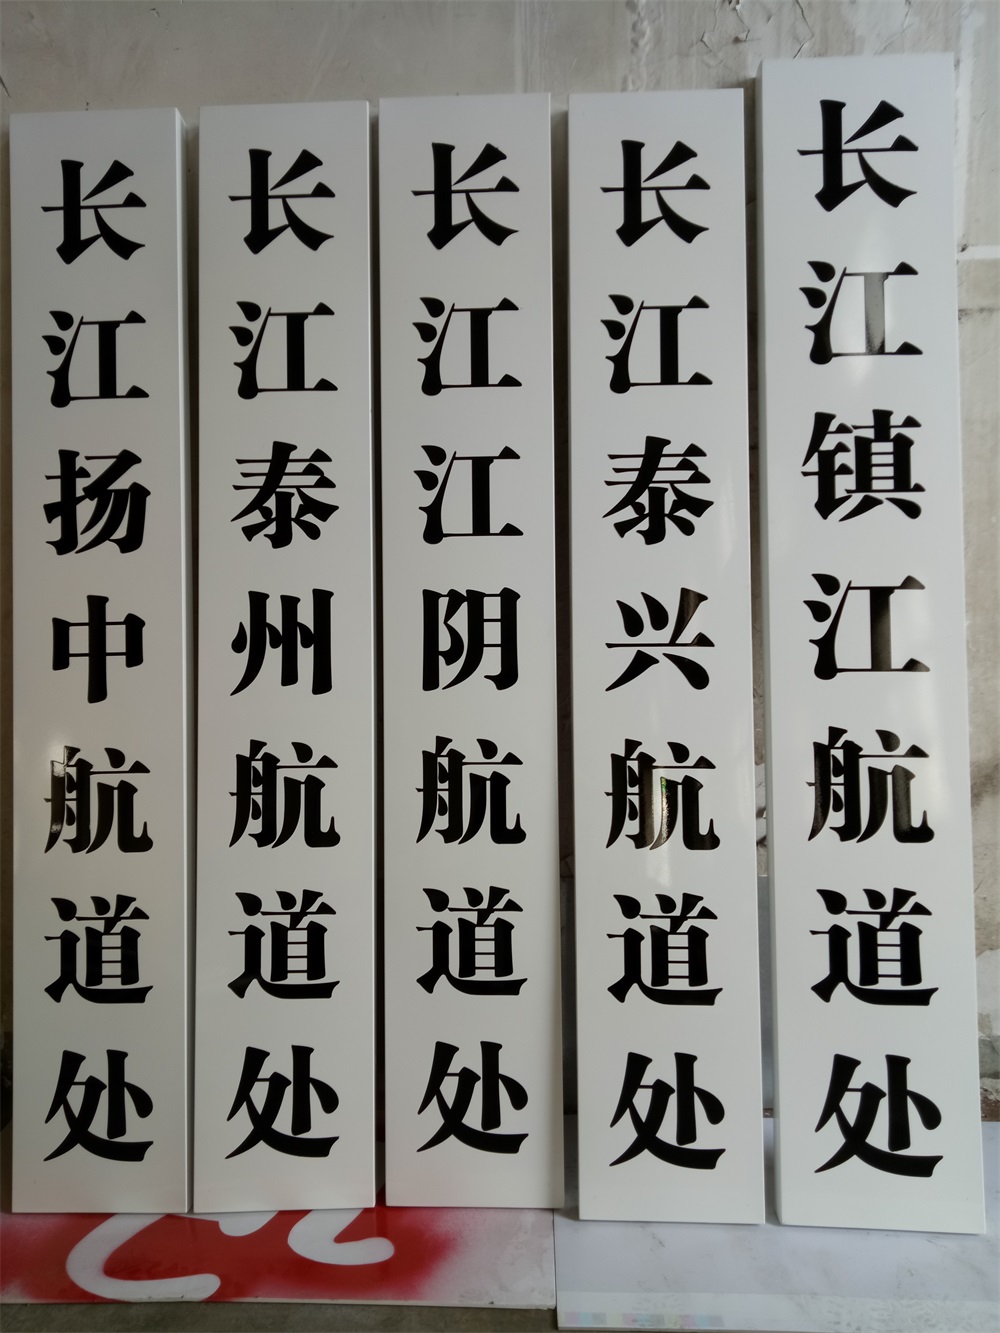 长江扬中航道处
长江泰州航道处
长江江阴航道处
长江泰兴航道处
长江镇江航道处